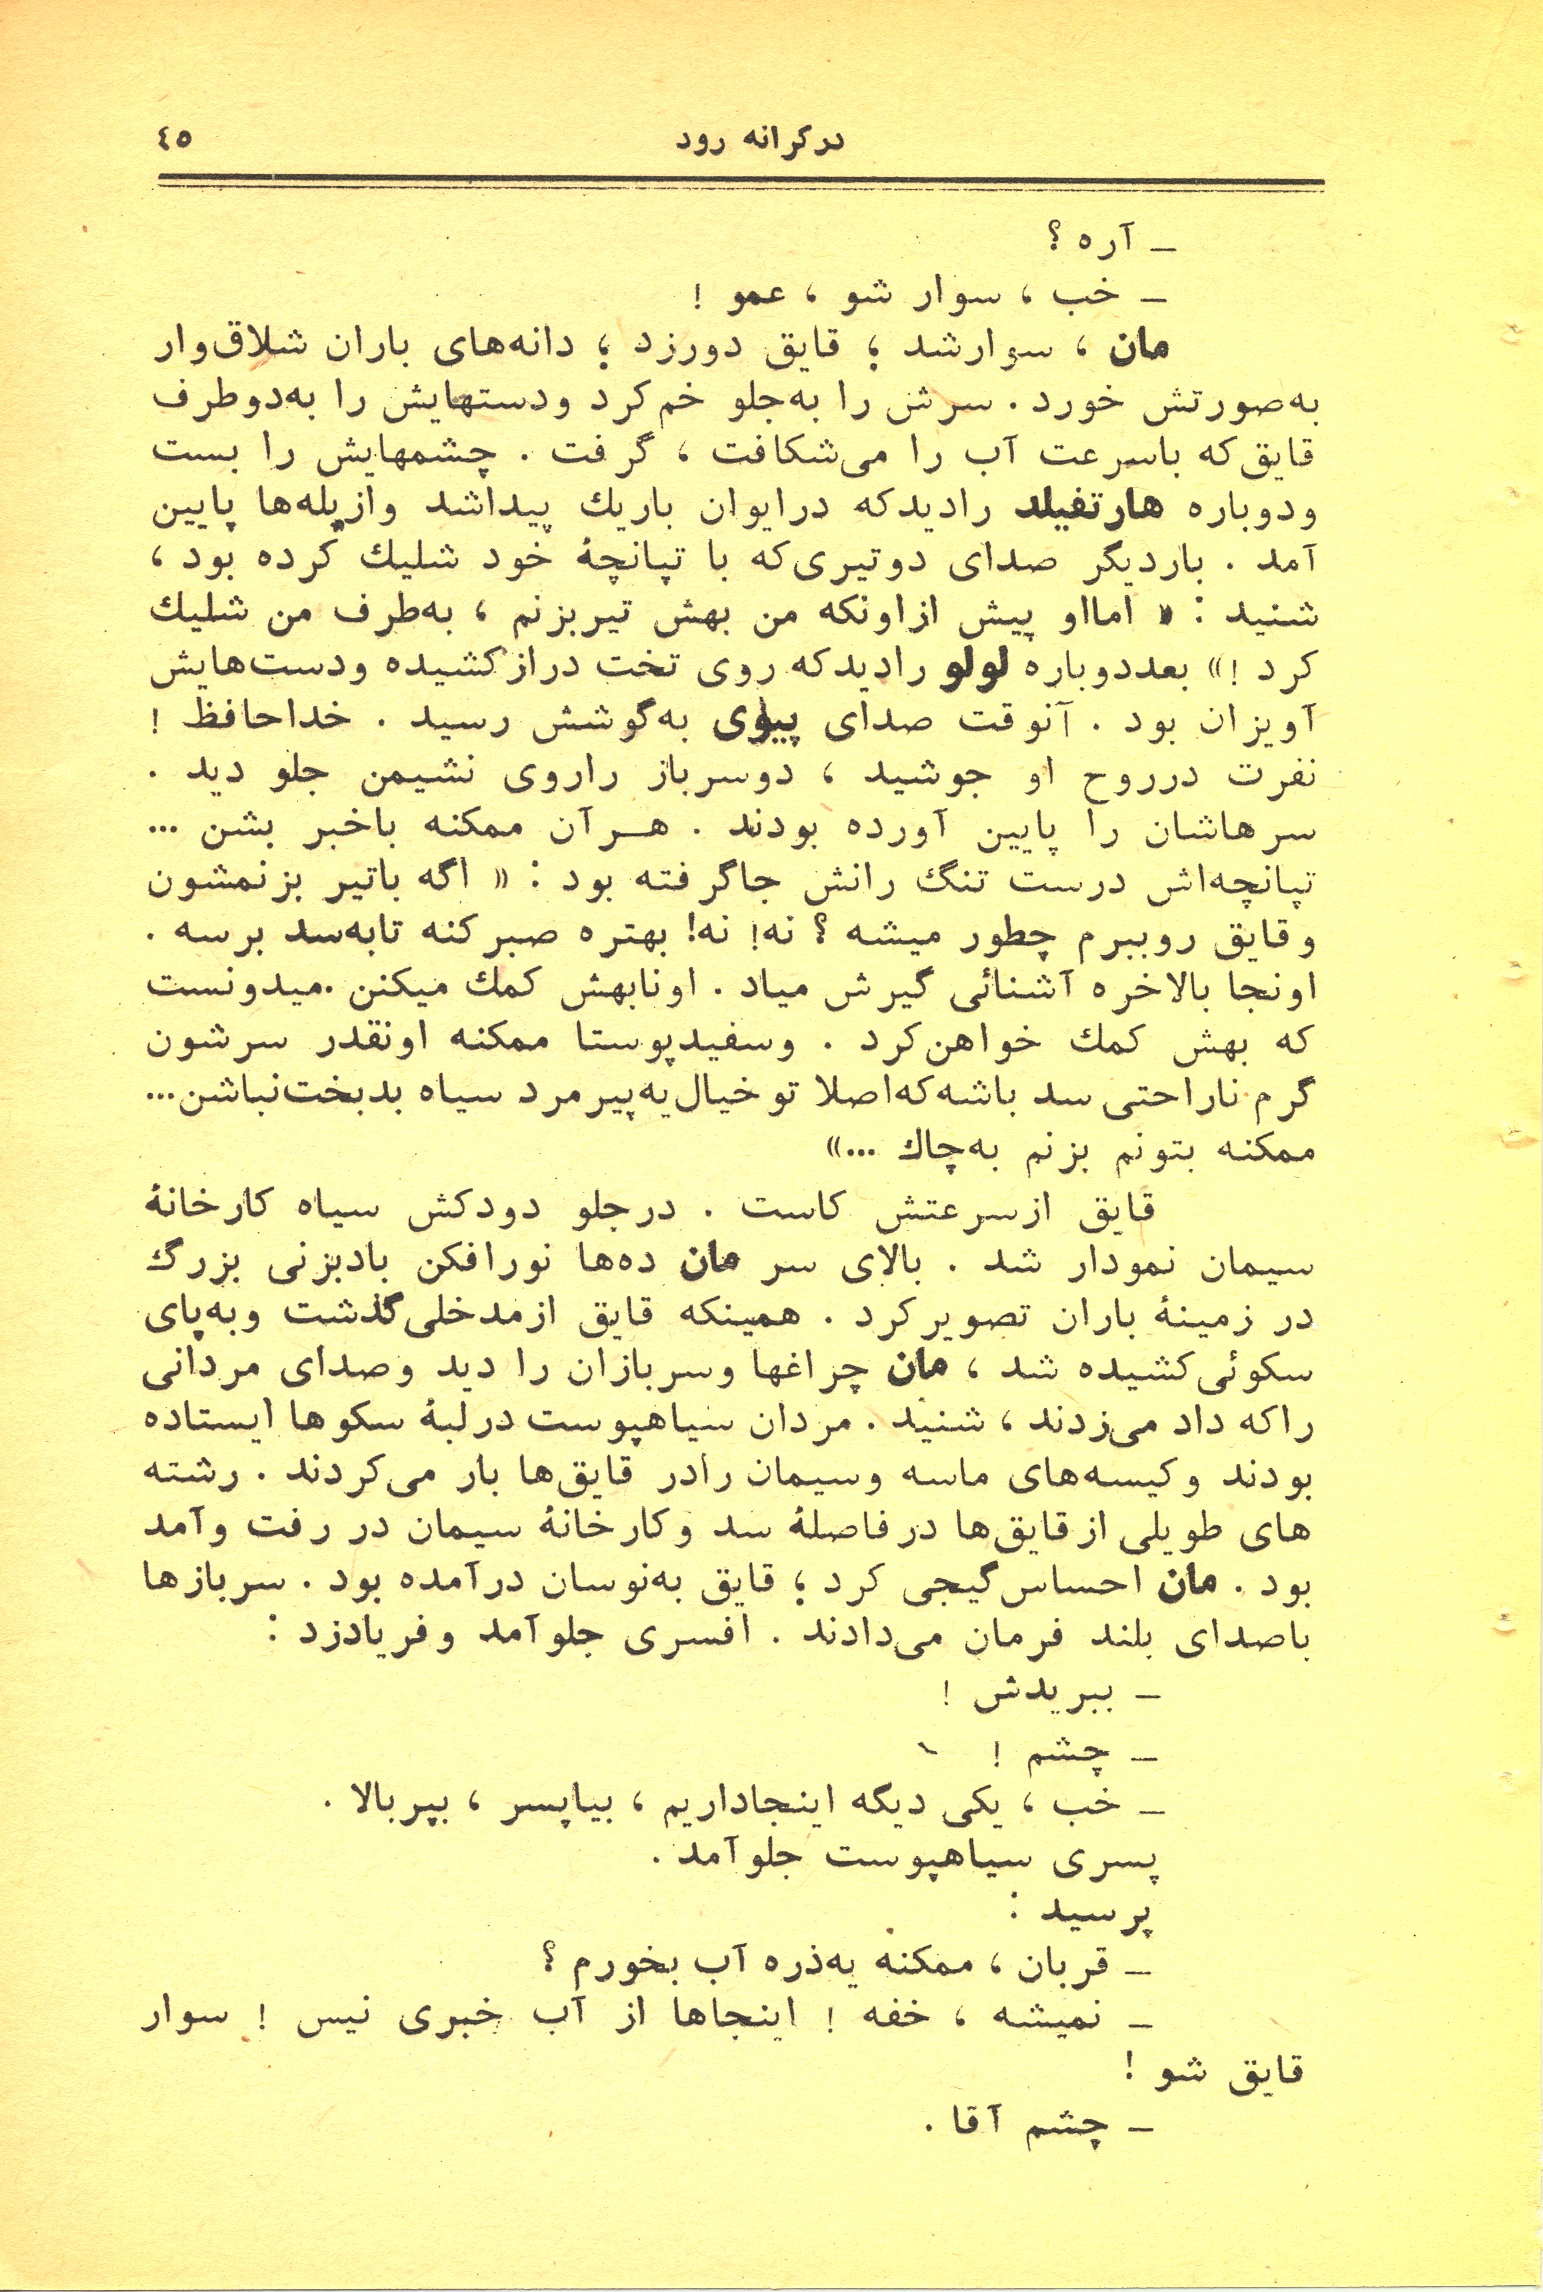 درکرانه رود
٤٥
ـ آره ؟
ـ خب ، سوار شو ، عمو !
مان ، سوارشد ؛ قایق دورزد ؛ دانه‌های باران شلاق‌وار
به‌صورتش خورد . سرش را به‌جلو خم‌کرد ودستهایش را به‌دوطرف
قایق‌که باسرعت آب را می‌شکافت ، گرفت . چشمهایش را بست
ودوباره هارتفیلد رادیدکه درایوان باریك پیداشد وازپله‌ها پایین
آمد . باردیگر صدای دوتیری‌که با تپانچهٔ خود شلیك کرده بود ،
شنید : « امااو پیش ازاونکه من بهش تیربزنم ، به‌طرف من شلیك
کرد !» بعددوباره لولو رادیدکه روی تخت درازکشیده ودست‌هایش
آویزان بود . آنوقت صدای پیوی به‌گوشش رسید . خداحافظ !
نفرت درروح او جوشید ، دوسرباز راروی نشیمن جلو دید .
سرهاشان را پایین آورده بودند . هـرآن ممکنه باخبر بشن ...
تپانچه‌اش درست تنگ رانش جاگرفته بود : « اگه باتیر بزنمشون
وقایق روببرم چطور میشه ؟ نه! نه! بهتره صبرکنه تابه‌سد برسه .
اونجا بالاخره آشنائی گیرش میاد . اونابهش کمك میکنن .میدونست
که بهش کمك خواهن‌کرد . وسفیدپوستا ممکنه اونقدر سرشون
گرم ناراحتی سد باشه‌که‌اصلا توخیال‌یه‌پیرمرد سیاه بدبخت‌نباشن...
ممکنه بتونم بزنم به‌چاك ...»
قایق ازسرعتش کاست . درجلو دودکش سیاه کارخانهٔ
سیمان نمودار شد . بالای سر مان ده‌ها نورافکن بادبزنی بزرگ
در زمینهٔ باران تصویرکرد . همینکه قایق ازمدخلی‌گذشت وبه‌پای
سکوئی‌کشیده شد ، مان چراغها وسربازان را دید وصدای مردانی
راکه داد می‌زدند ، شنید . مردان سیاهپوست درلبهٔ سکوها ایستاده
بودند وکیسه‌های ماسه وسیمان رادر قایق‌ها بار می‌کردند . رشته
های طویلی ازقایق‌ها درفاصلهٔ سد وکارخانهٔ سیمان در رفت وآمد
بود . مان احساس‌گیجی کرد ؛ قایق به‌نوسان درآمده بود . سربازها
باصدای بلند فرمان می‌دادند . افسری جلوآمد وفریادزد :
ـ ببریدش !
ـ چشم !
ـ خب ، یکی دیگه اینجاداریم ، بیاپسر ، بپربالا .
پسری سیاهپوست جلوآمد .
پرسید :
ـ قربان ، ممکنه یه‌ذره آب بخورم ؟
ـ نمیشه ، خفه ! اینجاها از آب خبری نیس ! سوار
قایق شو !
ـ چشم آقا .